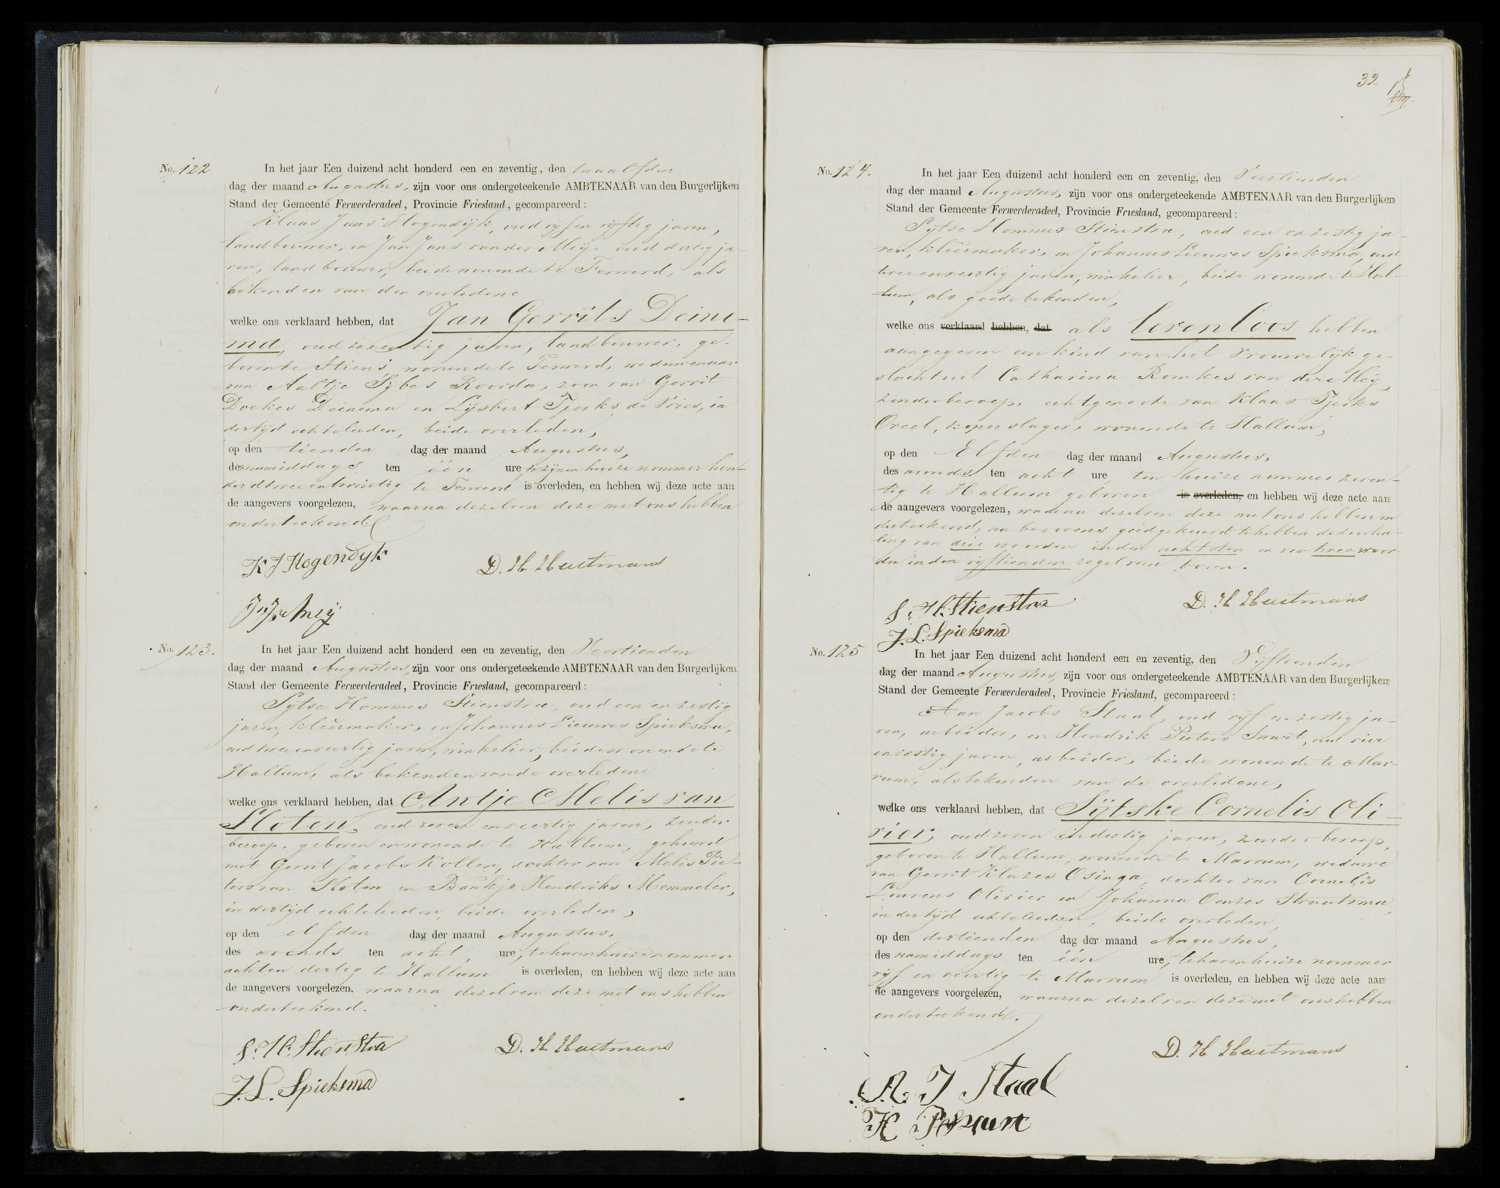 No. 122
In het jaar Een duizend acht honderd een en zeventig, den twaalfden
dag der maand Augustus, zijn voor ons ondergeteekende AMBTENAAR van den Burgerlijken
Stand der Gemeente Ferwerderadeel, Provincie Friesland, gecompareerd:
Klaas Jans Hogendijk, oud vijf en vijftig jaren,
landbouwer, en Jan Jans van der Meij oud dertig ja-
ren, landbouwer, beide wonende te Ferwerd, als
bekenden van den overledene
welke ons verklaard hebben, dat Jan Gerrits Deine-
ma, oud zeventig jaren, landbouwer, ge-
boren te wonende te Ferwerd, weduwnaar
van Aaltje Sybes Roorda, zoon van Gerrit
Doekes Deinema en Lijsbert Tjerks de Vries, in
dertijd echtelieden, beide overleden,
op den tienden dag der maand Augustus,
des namiddags ten één ure te zijnen huize nommer hon-
derd twee en twintig te Ferwerd is overleden, en hebben wij deze acte aan
de aangevers voorgelezen, waarna dezelven deze met ons hebben
onderteekend
K J Hogendyk D. H. Huetmans
J J vd Meij
No. 123.
In het jaar Een duizend acht honderd een en zeventig, den Veertienden
dag der maand Augustus, zijn voor ons ondergeteekende AMBTENAAR van den Burgerlijken
Stand der Gemeente Ferwerderadeel, Provincie Friesland, gecompareerd:
Sytse Hommes Stienstra, oud een en zestig
jaren, kleermaker, en Johannes Lieuwes Spieksma,
oud twee en veertig jaren, winkelier, beiden wonende te
Hallum, als bekenden van de overledene
welke ons verklaard hebben, dat Antje Melis van
Sloten, oud zeven en veertig jaren, zonder
beroep, geboren en wonende te Hallum, gehuwd
met Gerrit Jacobs Kollen, dochter van Melis Pie-
ters van Sloten en Baukje Hendriks Memmeler,
in dertijd echtelieden, beide overleden,
op den elfden dag der maand Augustus,
des avonds ten acht, ure, te haren huize nommer
acht en dertig te Hallum is overleden, en hebben wij deze acte aan
de aangevers voorgelezen, waarna dezelven deze met ons hebben
onderteekend.
S. H. Stienstra D. H. Huetmans
J. L. Spieksma
39.
No. 124.
In het jaar Een duizend acht honderd een en zeventig, den Veertienden
dag der maand Augustus, zijn voor ons ondergeteekende AMBTENAAR van den Burgerlijken
Stand der Gemeente Ferwerderadeel, Provincie Friesland, gecompareerd:
Sytse Hommes Stienstra, oud een en zestig ja-
ren, kleermaker, en Johannes Lieuwes Spieksma, oud
twee en veertig jaren, winkelier, beide wonende te Hal-
lum, als goede bekenden,
welke ons verklaard hebben, dat als levenloos hebben
aangegeven een kind van het vrouwelijk ge-
slacht uit Catharina Romkes van der Meij,
zonder beroep, echtgenoote van Klaas Tjerks
Orcel, koperslager, wonende te Hallum,
op den Elfden dag der maand Augustus,
des avonds ten acht ure ten huize nommer zeven-
tig te Hallum geboren is overleden, en hebben wij deze acte aan
de aangevers voorgelezen, waarna dezelven deze met ons hebben on-
derteekend, na bevorens goedgekeurd te hebben de doorha-
ling van drie woorden in den achtsten en van twee woor-
den in den vijftienden regel van boven.
S. H. Stienstra D. H. Huetmans
J. L. Spieksma
No. 125
In het jaar Een duizend acht honderd een en zeventig, den Vijftienden
dag der maand Augustus, zijn voor ons ondergeteekende AMBTENAAR van den Burgerlijken
Stand der Gemeente Ferwerderadeel, Provincie Friesland, gecompareerd:
Aan Jacobs Staal, oud vijf en zestig ja-
ren, arbeider, en Hendrik Pieters oud vier
en zestig jaren, arbeider, beide wonende te Mar-
rum, als bekenden van de overledene,
welke ons verklaard hebben, dat Sijtske Cornelis Oli-
vier, oud zeven en dertig jaren, zonder beroep,
geboren te Hallum, wonende te Marrum, weduwe
van Gerrit Klazes Osinga, dochter van Cornelis
Laurens Olivier en Johanna Straatsma,
in dertijd echtelieden, beide overleden,
op den dertienden dag der maand Augustus,
des namiddags ten één ure, te haren huize nommer
vijf en veertig te Marrum is overleden, en hebben wij deze acte aan
de aangevers voorgelezen, waarna dezelven deze met ons hebben
onderteekend.
D. H Huetmans
A. J Staal
H P